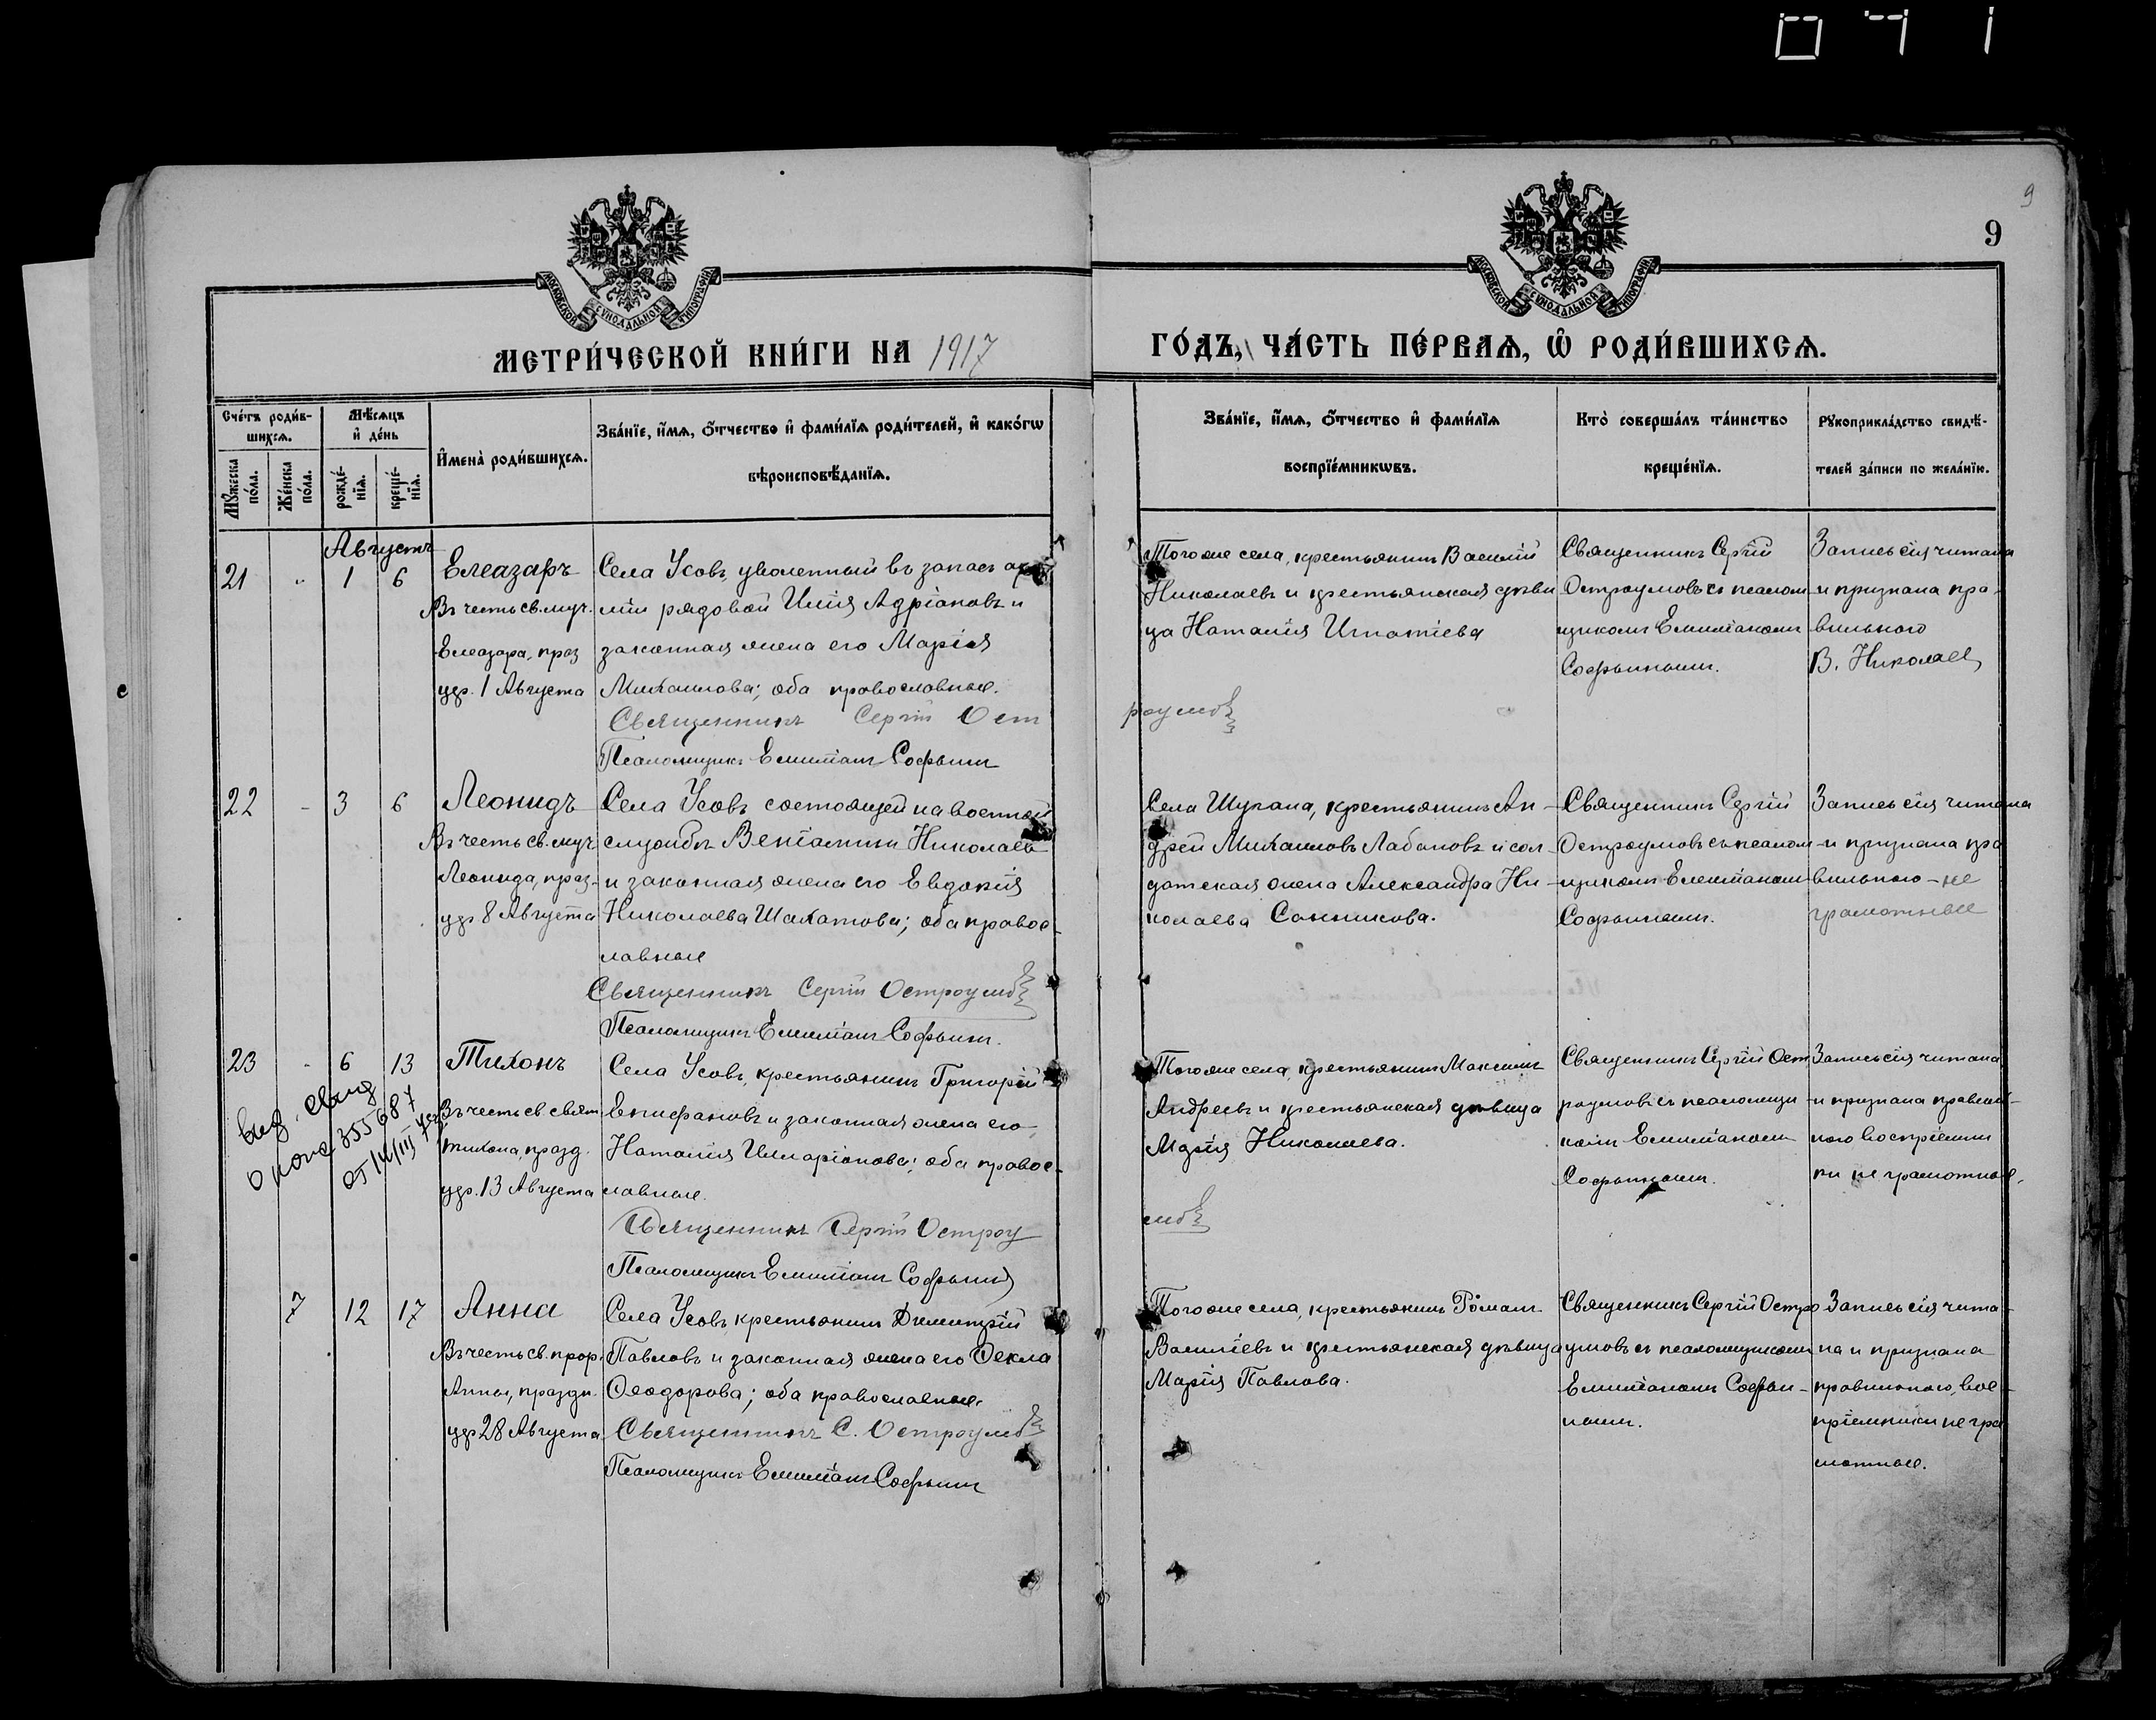 9
9
МОСКОВСКОЙ СѴНОДАЛЬНОЙ ТИПОГРАФІИ
МОСКОВСКОЙ СѴНОДАЛЬНОЙ ТИПОГРАФІИ
МЕТРИ́ЧЕСКОЙ КНИ́ГИ НА 1917
ГО́ДЪ, ЧА́СТЬ ПЕ́РВАѦ, Ѡ҆ РОДИ́ВШИХСѦ.
Сче́тъ роди́в-
шихсѧ.
Мꙋ́жеска по́ла.
Же́нска по́ла.
Мѣ́сѧцъ
и҆ де́нь
рожде́-
нїѧ.
креще́-
нїѧ.
И҆мена̀ роди́вшихсѧ.
Зва́нїе, и҆́мѧ, ѻ҆́тчество и҆ фами́лїѧ роди́телей, и҆ како́гѡ
вѣроисповѣ́данїѧ.
Зва́нїе, и҆́мѧ, ѻ҆́тчество и҆ фами́лїѧ
воспрїе́мникѡвъ.
Кто̀ соверша́лъ та́инство
креще́нїѧ.
Рꙋкоприкла́дство свидѣ́-
телей за́писи по жела́нїю.
Августъ
21 " 1 6
Елеазаръ
Въ честь св. муч.
Елеазара, праз
ндр. 1 Августа
Села Усовъ, уволенный въ запасъ ар
міи рядовой Илія Адріановъ и
законная жена его Марія
Михаилова; оба православные.
Священникъ Сергій Ост
роумовъ
Псаломщикъ Емиліанъ Софьинъ
Того же села, крестьянинъ Василій
Николаевъ и крестьянская дѣви
ца Наталія Игнатіева
Священникъ Сергій
Остроумовъ съ псалом
щикомъ Емиліаномъ
Софьинымъ.
Запись сія читана
и признана пра-
вильного
В. Николаев
22 - 3 6
Леонидъ
Въ честь св. муч
Леонида, праз-
ндр 8 Августа
Села Усовъ состоящей на военной
службѣ Веніаминъ Николаевъ
и законная жена его Евдокія
Николаева Шахатова; оба правос-
лавные
Священникъ Сергій Остроумовъ
Псаломщикъ Емиліанъ Софьинъ.
Села Шурана, крестьянинъ Ан-
дрей Михаиловъ Лабановъ и сол-
датская жена Александра Ни-
колаева Санникова.
Священникъ Сергій
Остроумовъ съ псалом
щикомъ Емиліаномъ
Софьинымъ.
Запись сія читана
и признана пра
вильного - не
грамотные
23 - 6 13
Тихонъ
Въ честь св. свят
Тихона, празд.
ндр. 13 Августа
Села Усовъ, крестьянинъ Григорій
Епифановъ и законная жена его
Наталія Иларіонова; оба правос-
лавные.
Священникъ Сергій Остроу
мовъ
Псаломщикъ Емиліанъ Софьинъ
Того же села, крестьянинъ Максимъ
Андреевъ и крестьянская дѣвица
Марія Николаева.
Священникъ Сергій Ост
роумовъ съ псаломщи
комъ Емиліаномъ
Софьинымъ.
Запись сія читана
и признана правиль-
ного воспріемни
ки не грамотные.
0 355687
от 14/III
7 12 17
Анна
Въ честь св. прор.
Анны, праздн.
ндр 28 Августа
Села Усовъ крестьянинъ Димитрій
Павловъ и законная жена его Ѳекла
Ѳеодорова; оба православные.
Священникъ С. Остроумовъ
Псаломщикъ Емиліанъ Софьинъ
Того же села, крестьянинъ Романъ
Василіевъ и крестьянская дѣвица
Марія Павлова.
Священникъ Сергій Остро
умовъ съ псаломщикомъ
Емиліаномъ Софьи-
нымъ.
Запись сія чита-
на и признана
правильного, вос-
пріемники не гра
мотные.